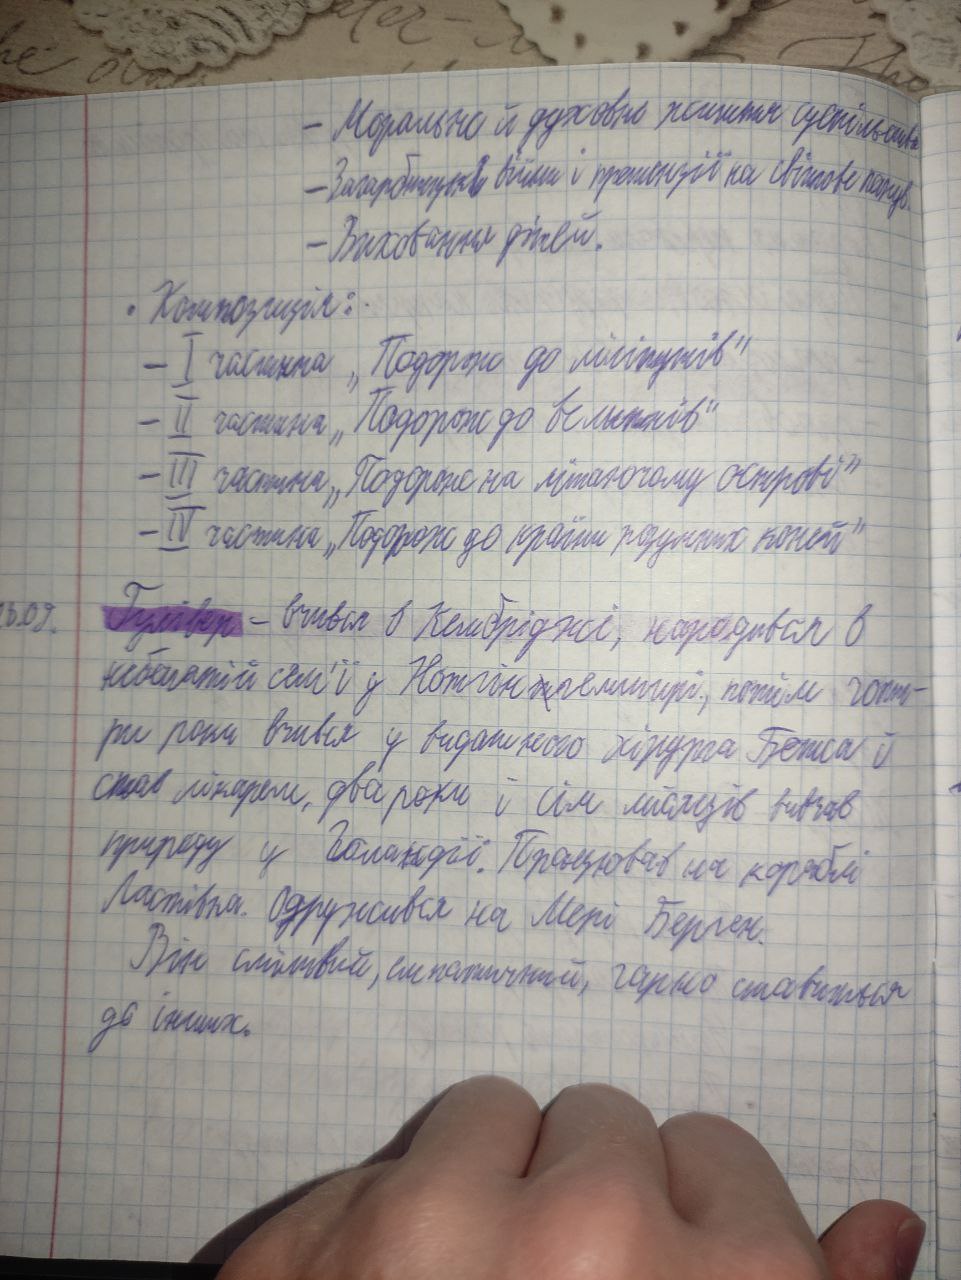 - Морально й духовно життя суспільства
- Загарбницькі війни і претензії на світове панув.
- Виховання дітей.
• Композиція:
- I частина „Подорож до ліліпутів"
- II частина „Подорож до велетнів"
- III частина „Подорож на літаючому острові"
- IV частина „Подорож до країни розумних коней"
Гулівер - вчився в Кембріджі, народився в
небагатій сем'ї у Ноттінгемширі, потім чоти-
ри роки вчився у видатного хірурга Бетса й
став лікарем, два роки і сім місяців вивчав
природу у Голандії. Працював на кораблі
Ластівка. Одружився на Мері Бертен.
Він сміливий, емпатичний, гарно ставиться
до інших.